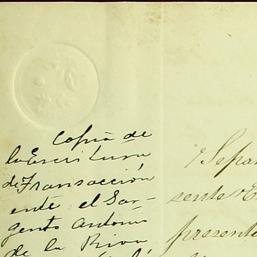 Copia de
la Escritura
de Transacción
ente el Sar-
gento Antonio
de la Riva
Sepan
sente E
presente